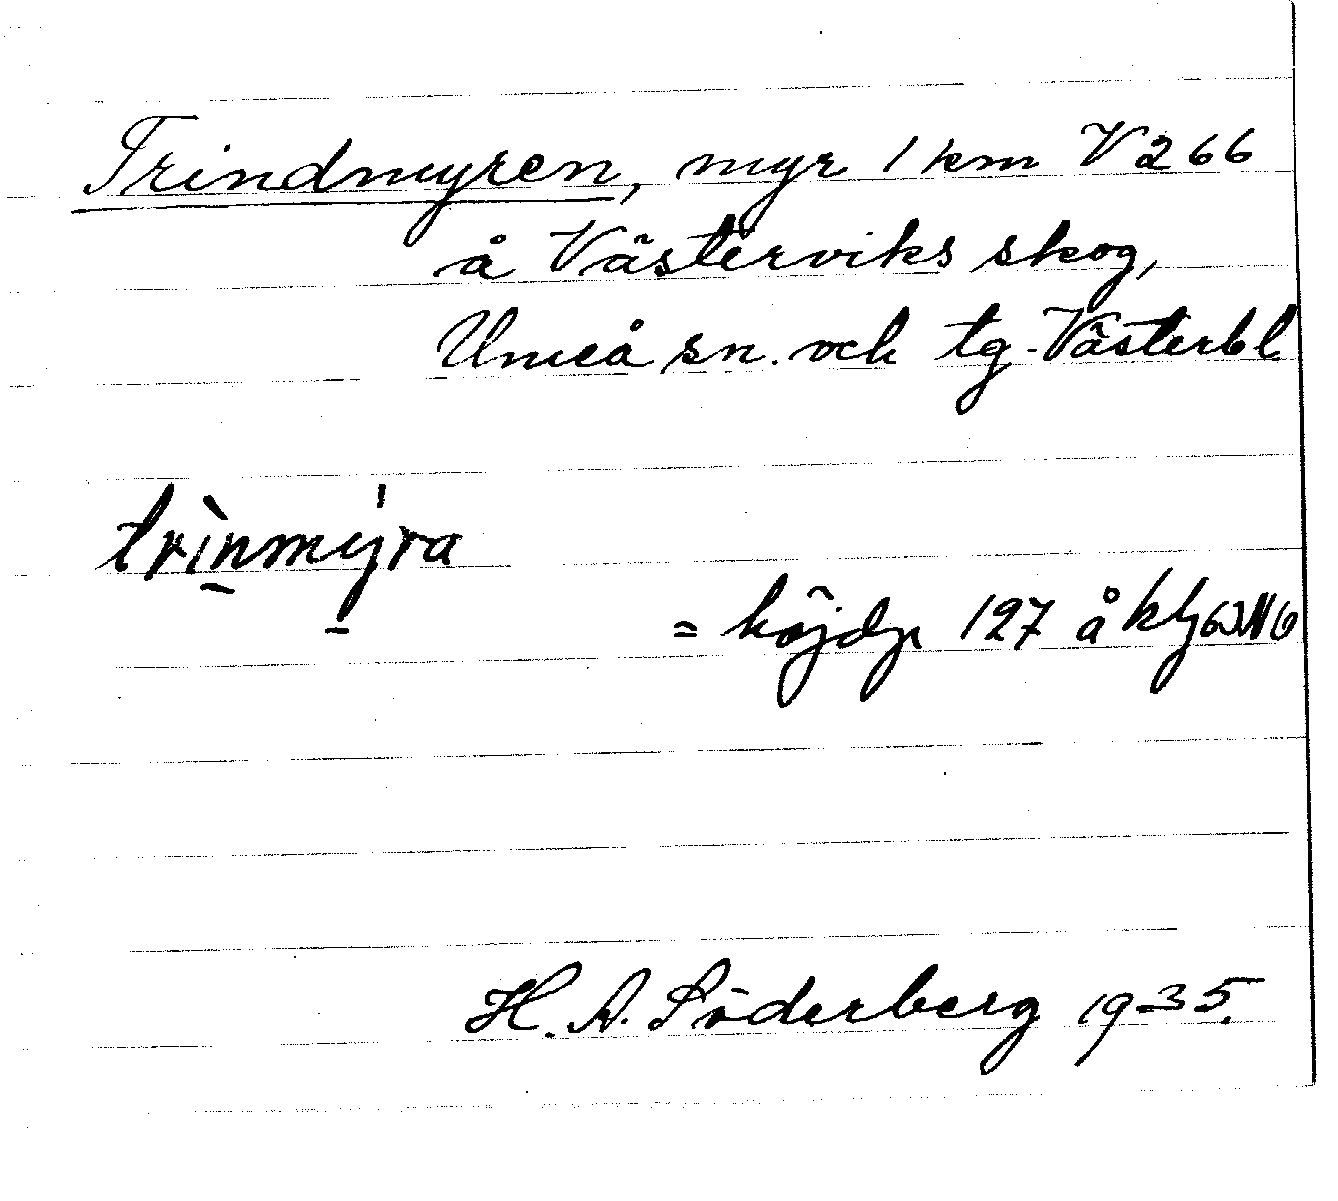 Trindmyren, myr 1 km V 266
å Västerviks skog,
Umeå sn. och tg. Västerbl
trìnmy̍ra
= höjdp 127 å kbl 63 N 6
H. A. Söderberg 1935.